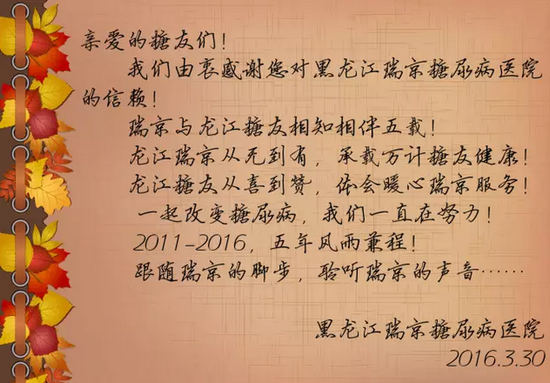 亲爱的糖友们！
我们由衷感谢您对黑龙江瑞京糖尿病医院
的信赖！
瑞京与龙江糖友相知相伴五载！
龙江瑞京从无到有，承载万计糖友健康！
龙江糖友从喜到赞，体会暖心瑞京服务！
一起改变糖尿病，我们一直在努力！
2011-2016，五年风雨兼程！
跟随瑞京的脚步，聆听瑞京的声音……
黑龙江瑞京糖尿病医院
2016.3.30